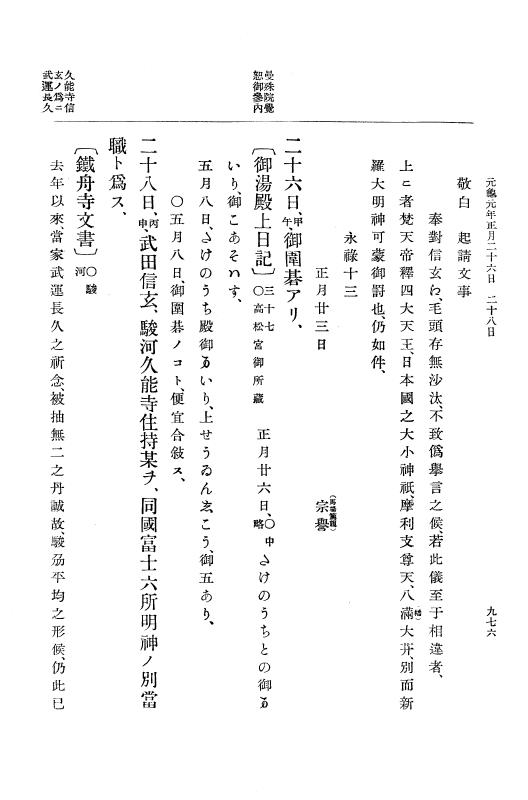 元龜元年正月二十六日　二十八日
九七六
曼殊院覺
恕御參內
久能寺信
玄ノ爲ニ
武運長久
敬白　起請文事
奉對信玄江、毛頭存無沙汰、不致僞擧言之候、若此儀至于相違者、
上ニ者梵天帝釋四大天王、日本國之大小神祇、摩利支尊天、八滿（幡）大井、別而新
羅大明神可蒙御罸也、仍如件、
永祿十三
正月廿三日
宗譽
二十六日、甲午、御圍碁アリ、
〔御湯殿上日記〕〇三十七高松宮御所藏　正月廿六日、〇中略さけのうちとの御る
いり、御こあそはす、
五月八日、さけのうち殿御るいり、上せうゐんゑこう、御五あり、
〇五月八日、御圍碁ノコト、便宜合敍ス、
二十八日、丙申、武田信玄、駿河久能寺住持某ヲ、同國富士六所明神ノ別當
職ト爲ス、
〔鐵舟寺文書〕〇駿河
去年以來、當家武運長久之祈念、被抽無二之丹誠故、駿刕平均之形候、仍此已